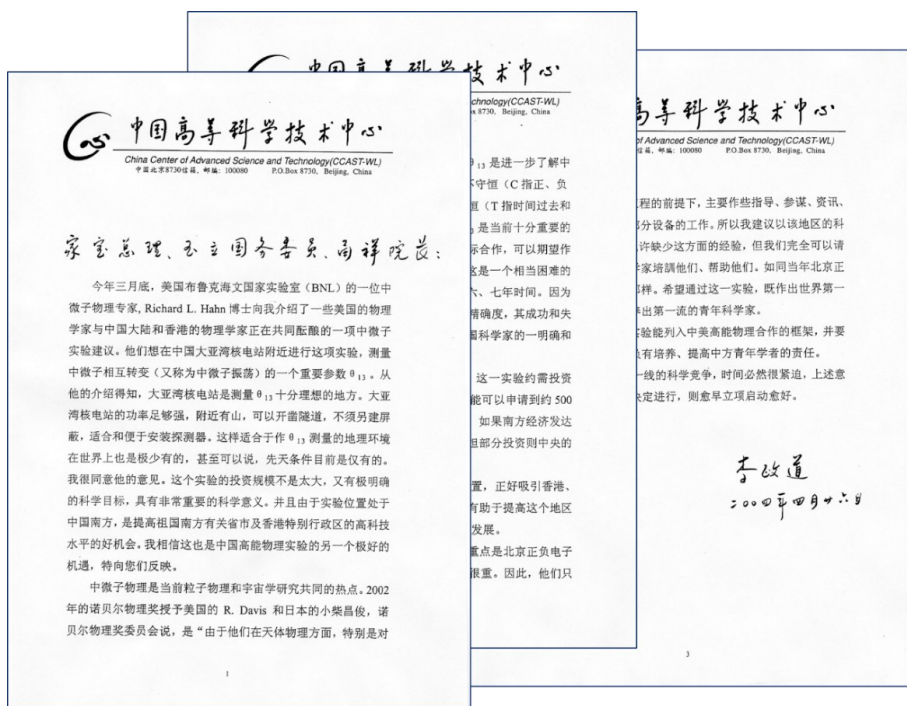 中国高等科学技术中心
China Center of Advanced Science and Technology(CCAST-WL)
中国北京8730信箱，邮编：100080 P.O.Box 8730, Beijing, China
家宝总理、至立国务委员、甬祥院长：
今年三月底，美国布鲁克海文国家实验室（BNL）的一位中
微子物理专家, Richard L. Hahn 博士向我介绍了一些美国的物理
学家与中国大陆和香港的物理学家正在共同酝酿的一项中微子
实验建议。他们想在中国大亚湾核电站附近进行这项实验，测量
中微子相互转变（又称为中微子振荡）的一个重要参数θ13。从
他的介绍得知，大亚湾核电站是测量θ13十分理想的地方。大亚
湾核电站的功率足够强，附近有山，可以开凿隧道，不须另建屏
蔽，适合和便于安装探测器。这样适合于作θ13 测量的地理环境
在世界上也是极少有的，甚至可以说，先天条件目前是仅有的。
我很同意他的意见。这个实验的投资规模不是太大，又有极明确
的科学目标，具有非常重要的科学意义。并且由于实验位置处于
中国南方，是提高祖国南方有关省市及香港特别行政区的高科技
水平的好机会。我相信这也是中国高能物理实验的另一个极好的
机遇，特向您们反映。
中微子物理是当前粒子物理和宇宙学研究共同的热点。2002
年的诺贝尔物理奖授予美国的 R. Davis 和日本的小柴昌俊，诺
贝尔物理奖委员会说，是“由于他们在天体物理方面，特别是对
1
技术中心
chnology(CCAST-WL)
x 8730, Beijing, China
13 是进一步了解中
不守恒（C 指正、负
恒（T 指时间过去和
是当前十分重要的
际合作，可以期望作
这是一个相当困难的
六、七年时间。因为
精确度，其成功和失
国科学家的一明确和
这一实验约需投资
能可以申请到约 500
如果南方经济发达
但部分投资则中央的
置，正好吸引香港、
有助于提高这个地区
发展。
重点是北京正负电子
很重。因此，他们只
高等科学技术中心
of Advanced Science and Technology(CCAST-WL)
信箱，邮编：100080 P.O.Box 8730, Beijing, China
程的前提下，主要作些指导、参谋、资讯、
部分设备的工作。所以我建议以该地区的科
许缺少这方面的经验，但我们完全可以请
学家培訓他们、帮助他们。如同当年北京正
那样。希望通过这一实验，既作出世界第一
出第一流的青年科学家。
验能列入中美高能物理合作的框架，并要
负有培养、提高中方青年学者的责任。
一线的科学竞争，时间必然很紧迫，上述意
决定进行，则愈早立项启动愈好。
李政道
二〇〇四年四月廿六日
3